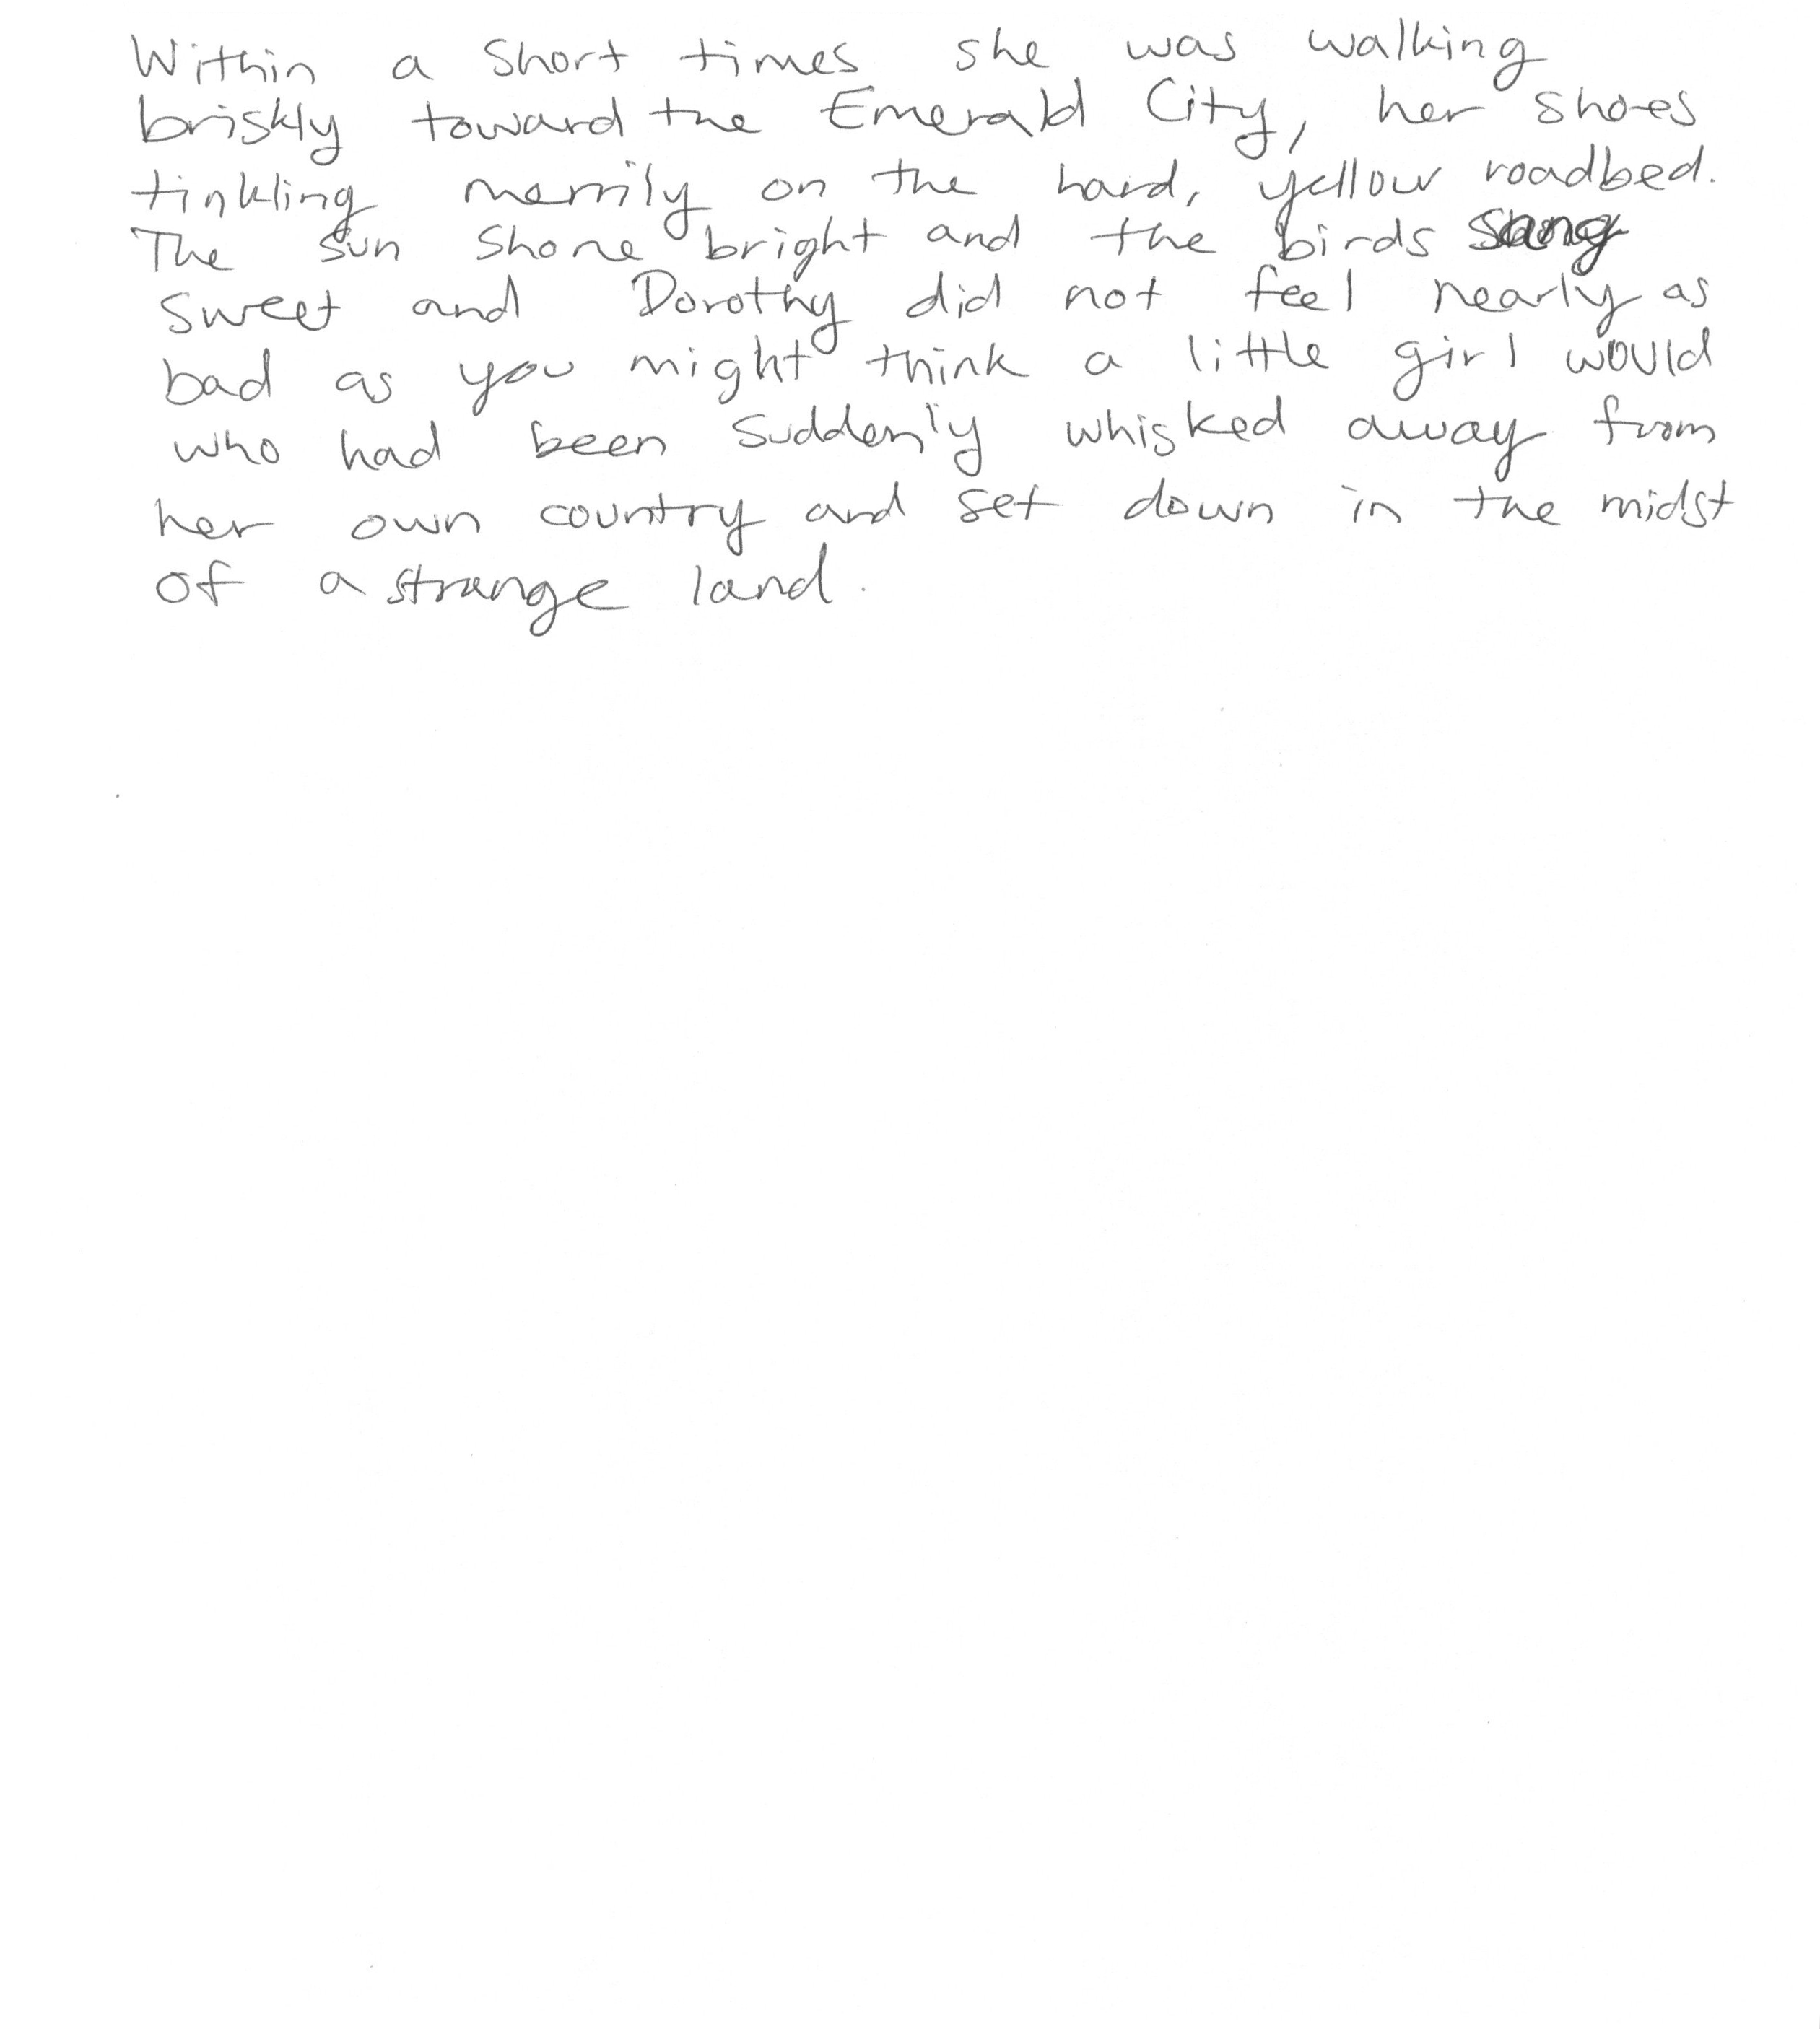 Within a short times she was walking
briskly toward the Emerald City, her shoes
tinkling merrily on the hard, yellow roadbed.
The sun shone bright and the birds sang
sweet and Dorothy did not feel nearly as
bad as you might think a little girl would
who had been suddenly whisked away from
her own country and set down in the midst
of a strange land.